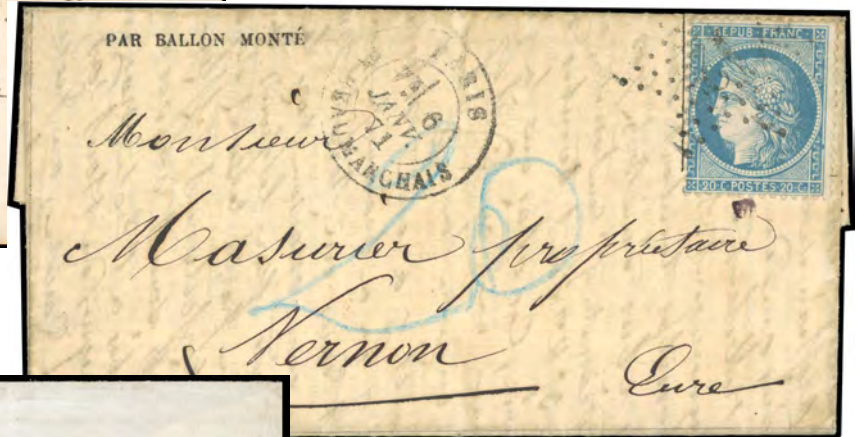 PAR BALLON MONTÉ
PARIS
6
JANV.
71
REPUB. FRANC.
20 C POSTES 20 C
Monsieur
Masurier propriétaire
20
Vernon
Eure